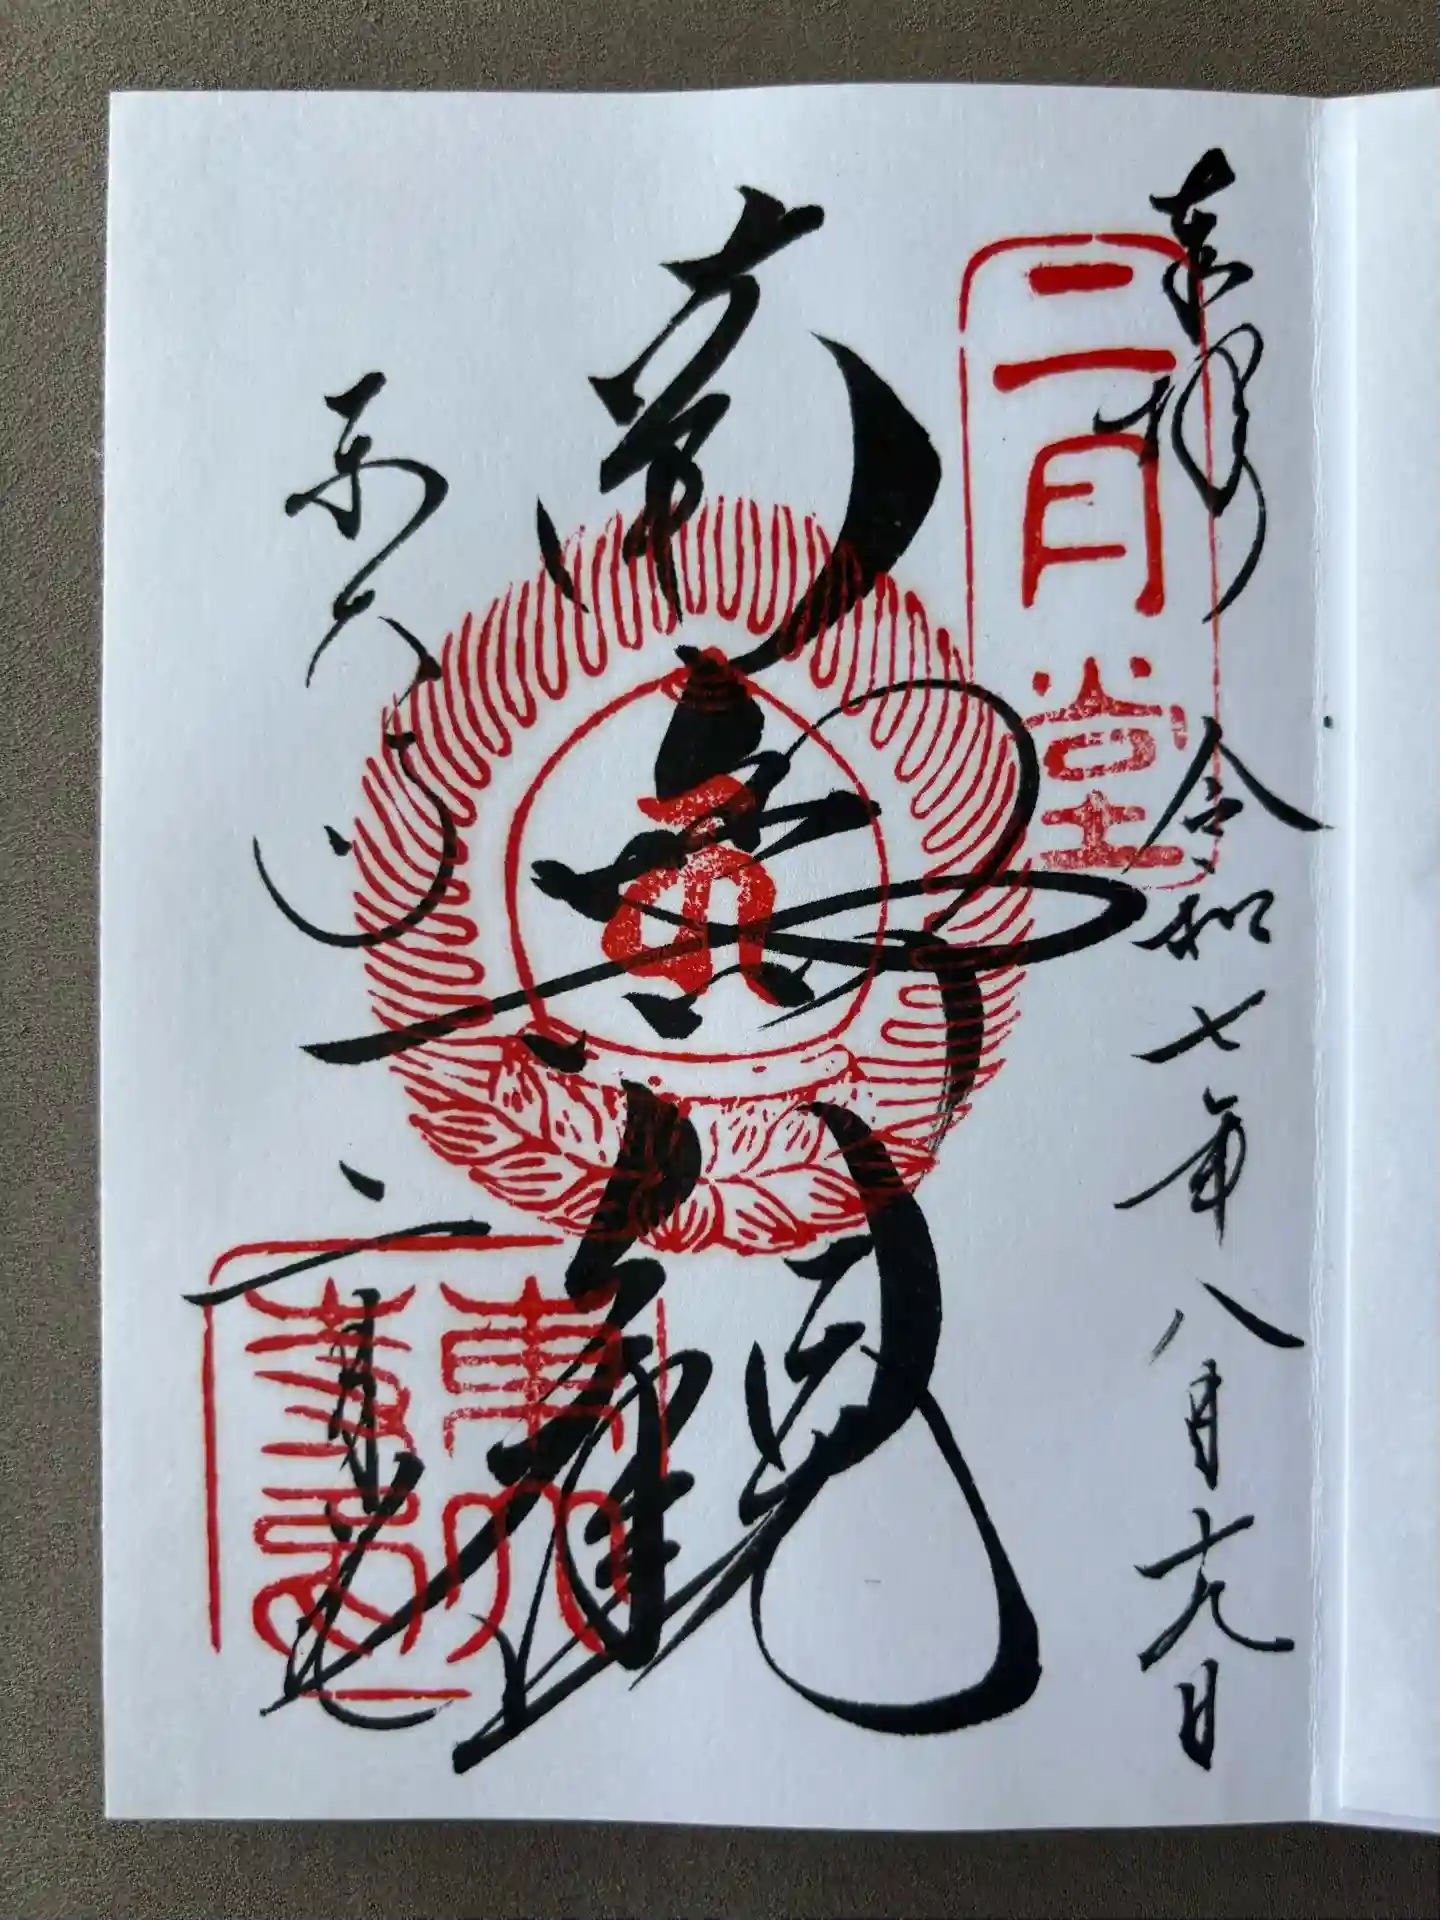 奉拝
令和七年八月十九日
二月堂
南無観
東大寺
二月堂
東大